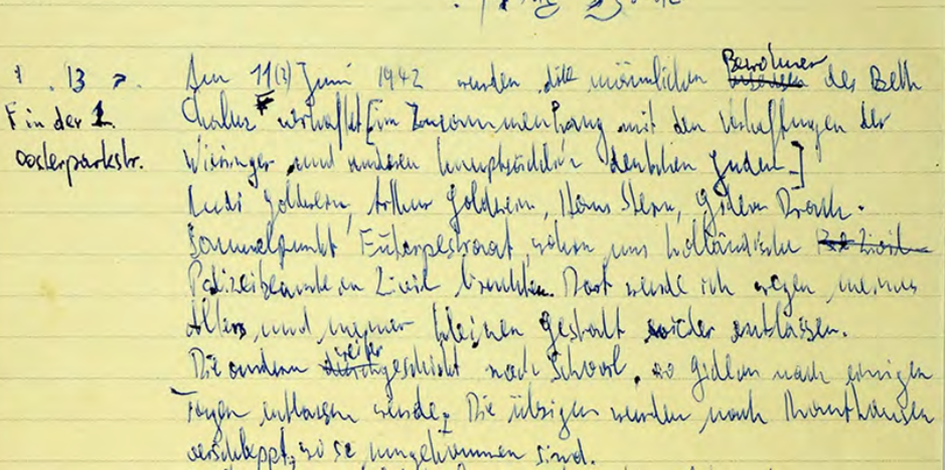 13 ?
F in der 1.
Oosterparkstr.
Am 11(?) Juni 1942 wurden die männlichen Bewohner des Beth
Chaluz verhaftet [im Zusammenhang mit den Verhaftungen der
Wieringer und anderen hauptsächlich deutschen Juden.]
Rudi Goldstern, Arthur Goldstern, Hans Stern, Gideon Drach.
Sammelpunkt Euterpestraat, wohin uns holländische
Polizeibeamte in Zivil brachten. Dort wurde ich wegen meines
Alters und meiner kleinen Gestalt wieder entlassen.
Die andern weitergeschickt nach Schoorl, wo Gideon nach einigen
Tagen entlassen wurde. Die übrigen wurden nach Mauthausen
verschleppt, wo sie umgekommen sind.